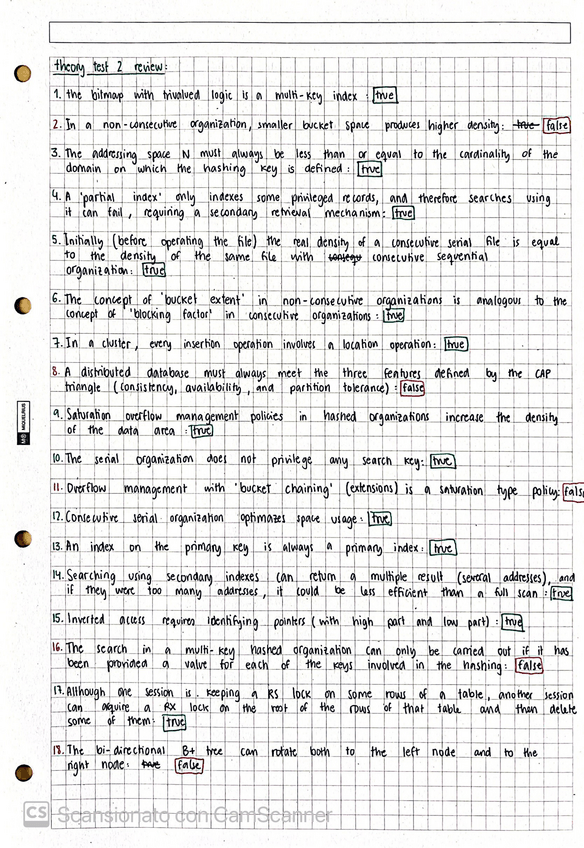 theory test 2 review:
1. the bitmap with trivalued logic is a multi-key index : true
2. In a non-consecutive organization, smaller bucket space produces higher density: true false
3. The addressing space N must always be less than or equal to the cardinality of the
domain on which the hashing key is defined : true
4. A 'partial index' only indexes some privileged records, and therefore searches using
it can fail, requiring a secondary retrieval mechanism: true
5. Initially (before operating the file) the real density of a consecutive serial file is equal
to the density of the same file with consequ consecutive sequential
organization: true
6. The concept of 'bucket extent' in non-consecutive organizations is analogous to the
concept of 'blocking factor' in consecutive organizations : true
7. In a cluster, every insertion operation involves a location operation: true
8. A distributed database must always meet the three features defined by the CAP
triangle (consistency, availability, and partition tolerance) : false
9. Saturation overflow management policies in hashed organizations increase the density
of the data area : true
10. The serial organization does not privilege any search key: true
11. Overflow management with 'bucket chaining' (extensions) is a saturation type policy: false
12. Consecutive serial organization optimazes space usage: true
13. An index on the primary key is always a primary index: true
14. Searching using secondary indexes can return a multiple result (several addresses), and
if they were too many addresses, it could be less efficient than a full scan : true
15. Inverted access requires identifying pointers (with high part and low part) : true
16. The search in a multi-key hashed organization can only be carried out if it has
been provided a value for each of the keys involved in the hashing: false
17. Although one session is keeping a RS lock on some rows of a table, another session
can aquire a RX lock on the root of the rows of that table and then delete
some of them: true
18. The bi-directional B+ tree can rotate both to the left node and to the
right node: true false
MIQUELRIUS
CS Scansionato con CamScanner